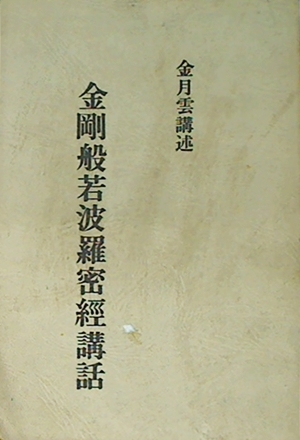 金月雲講述
金剛般若波羅密經講話